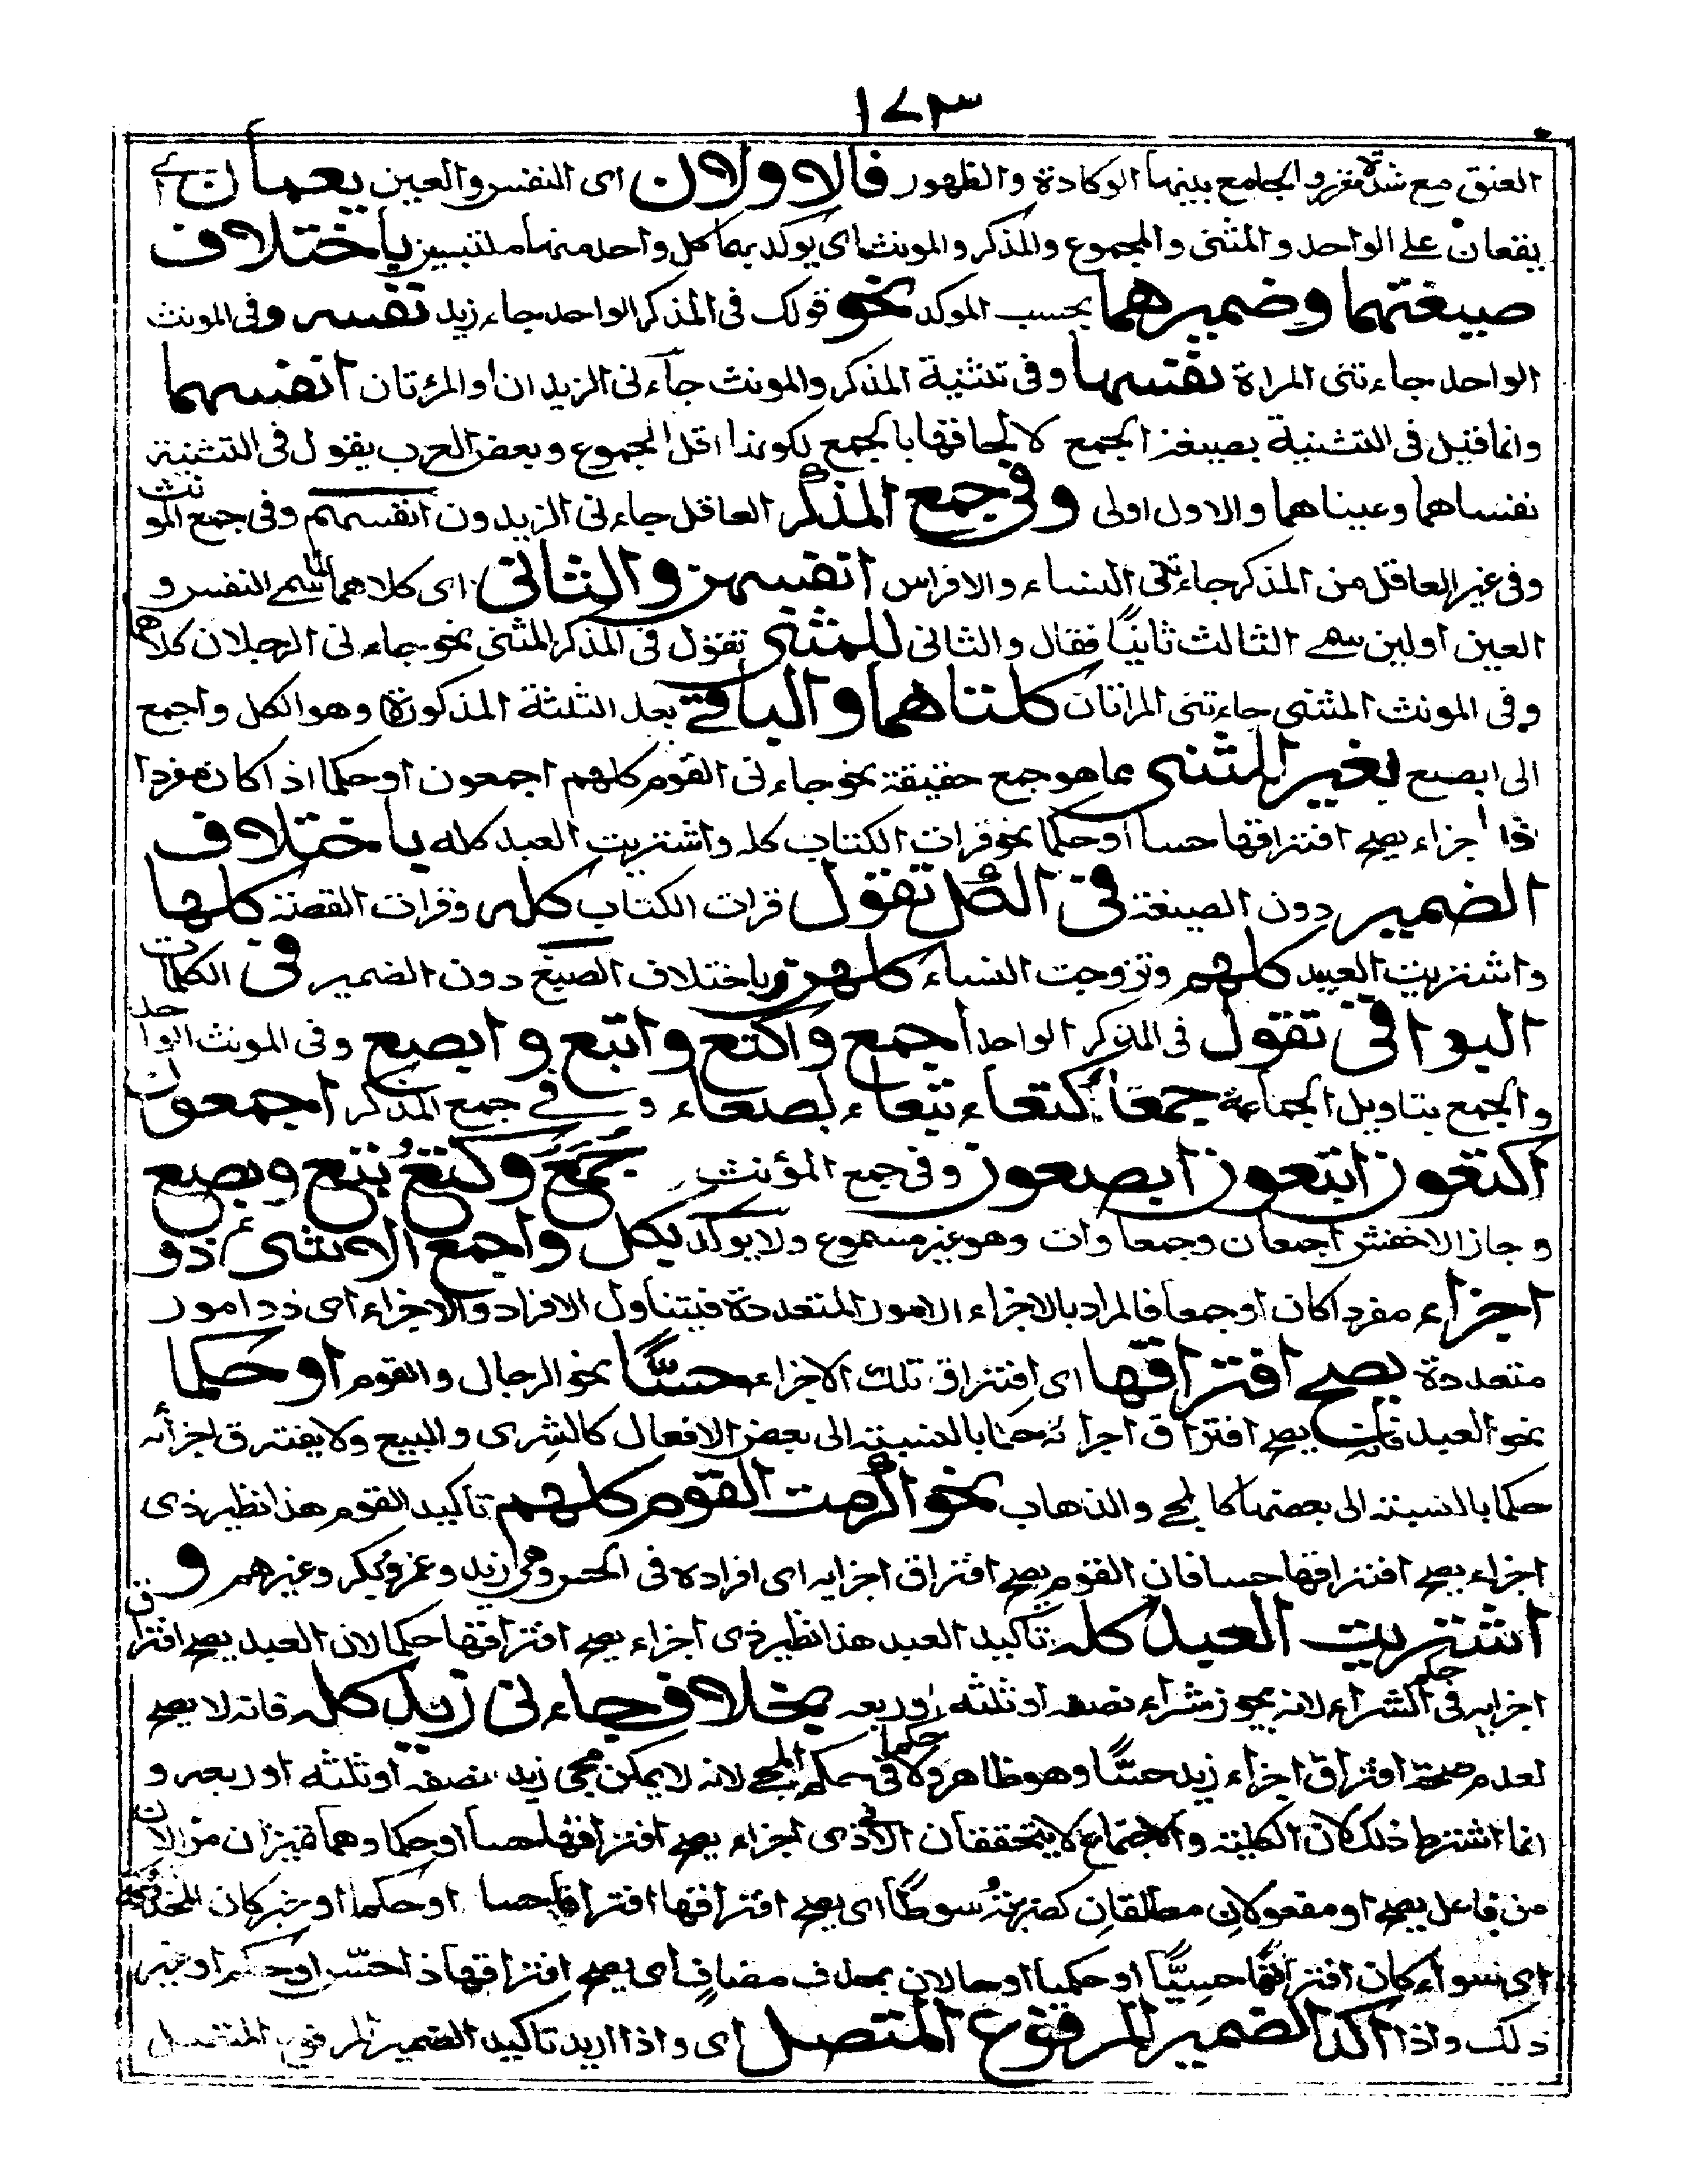 ١٧٣
العنق مع شدة مغزرو الجامع بينهما الوكادة والظهور فالاولان اى النفس والعين يعمان اے
يقعان على الواحد والمثنى والمجموع والمذكر والمونث اى يوكد بهما كل واحد منهما ملتبسين باختلاف
صيغتهما وضميرهما بحسب الموكد نحو قولك فى المذكر الواحد جاء زيد نفسه وفى المونث
الواحد جاءتنى المراة نفسها وفى تثنية المذكر والمونث جآءنى الزيدان او المرءتان انفسهما
وانما قيل فى التثنية بصيغة الجمع لالحاقها بالجمع لكونها اقل الجموع وبعض العرب يقول فى التثنية
نفساهما وعيناهما والاول اولى وفى جمع المذكر العاقل جاءنى الزيدون انفسهم وفى جمع المونث
وفى غير العاقل من المذكر جاءتنى النساء والافراس انفسهن والثانى اى كلاهما لما سمى النفس و
العين اولين سمى الثالث ثانيًا فقال والثانى للمثنى تقول فى المذكر المثنى نحو جاءنى الرجلان كلاهما
وفى المونث المثنى جاءتنى المراتان كلتاهما والباقى بعد الثلثة المذكورة وهو الكل واجمع
الى ابصع بغير المثنى مما هو جمع حقيقة نحو جاءنى القوم كلهم اجمعون او حكما اذا كان مفردا
ذا اجزاء يصح افتراقها حسا او حكما نحو قرات الكتاب كله واشتريت العبد كله باختلاف
الضمير دون الصيغة فى الكل تقول قرات الكتاب كله وقرات القصة كلها
واشتريت العبيد كلهم وتزوجت النساء كلهن وباختلاف الصيغ دون الضمير فى الكلمات
البواقى تقول فى المذكر الواحد اجمع واكتع واتبع وابصع وفى المونث الواحد
والجمع بتاويل الجماعة جمعاء كتعاء تبعاء بصعاء وفى جمع المذكر اجمعون
اكتعون ابتعون ابصعون وفى جمع المؤنث جُمَعُ وكُتَعُ بُتع وبصع
وجاز الاخفش اجمعان وجمعاوات وهو غير مسموع ولا يوكد بكل واجمع الا شئ ذو
اجزاء مفردا كان او جمعا فالمراد بالاجزاء الامور المتعددة فيتناول الافراد والاجزاء اى ذو امور
متعددة يصح افتراقها اى افتراق تلك الاجزاء حسًّا نحو الرجال والقوم او حكما
نحو العبد فانه يصح افتراق اجزائه حكما بالنسبة الى بعض الافعال كالشرى والبيع ولا يفترق اجزائه
حكما بالنسبة الى بعضها كالمجى والذهاب نحو اكرمت القوم كلهم تاكيد القوم هذا نظير ذى
اجزاء يصح افتراقها حسا فان القوم يصح افتراق اجزايه اى افراده فى الحس وهى زيد وعمرو وبكر وغيرهم و
اشتريت العبد كله تاكيد العبد هذا نظير ذى اجزاء يصح افتراقها حكما لان العبد يصح افتراق
اجزايه فى حكم الشراء لانه يجوز شراء نصفه او ثلثه او ربعه بخلاف جاءنى زيد كله فانه لا يصح
لعدم صحة افتراق اجزاء زيد حسًّا وهو ظاهر ولا حكما فى حكم المجى لانه لا يمكن مجى زيد نصفه او ثلثه او ربعه و
انما اشترط ذلك لان الكلية والاجتماع لا يتحققان الا فى ذى اجزاء يصح افتراقها حسا او حكما وهما تميزان من الان
من فاعل يصح او مفعولان مطلقان كضربته سوطًا اى يصح افتراقها افتراقا حسا او حكما او خبر كان المحذوفة
اى سواء كان افتراقها حسيًّا او حكميا او حالان بحذف مضاف اى يصح افتراقها ذا حس او حكم او غير
ذلك واذا اكد الضمير المرفوع المتصل اى واذا اريد تاكيد الضمير المرفوع المتصل